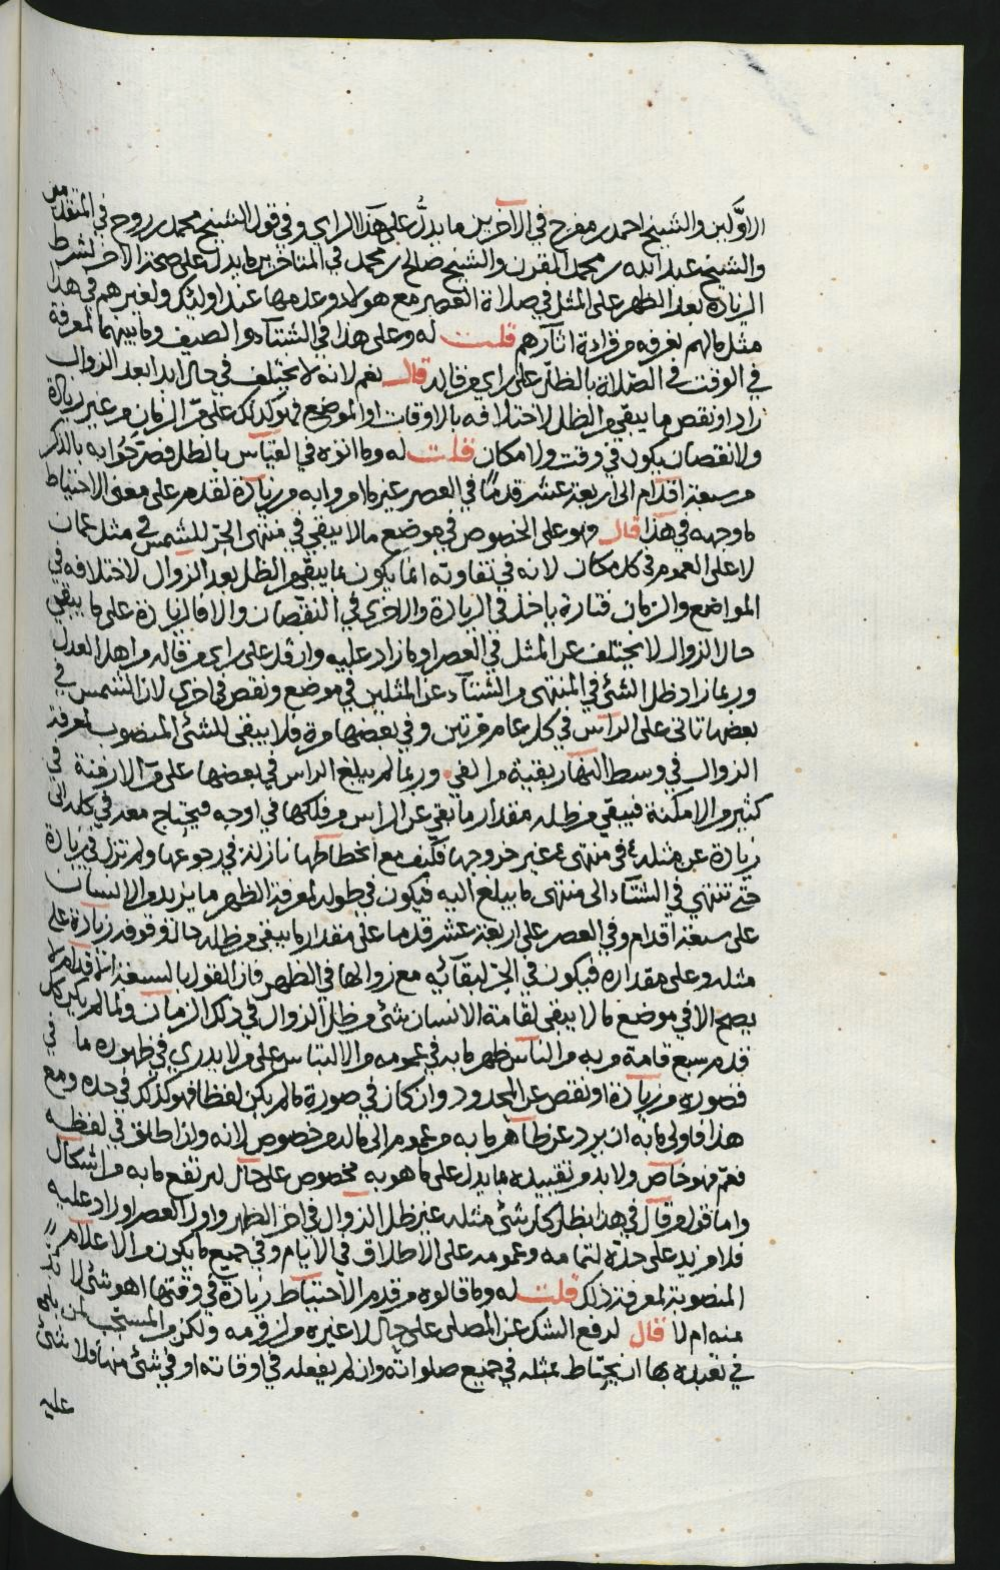 الاوّلين والشيخ احمد بن مفرج في الآخرين ما يدلُّ على هذا الراي وفي قول الشيخ محمد بن روح في المتقدمين
والشيخ عبدالله بن محمد القرن والشيخ صالح بن محمد في المتاخرين ما يدل على صحة الاخر لشرط
الزيادة بعد الظهر على المثل في صلاة العصر مع هولاء وعدمها عند اوليك ولغيرهم في هذا
مثل ما لهم نعرفه من قراءة اثارهم قلت له وعلى هذا في الشتآء والصيف وما بينهما لمعرفة
في الوقت في الصّلاة بالظلّ على راي من قاله قال نعم لانه لا يختلف في حال ابدا بعد الزوال
زاد او نقص ما يبقى من الظل لاختلافه بالاوقات او المواضع فهو كذلك على مرّ الزمان من غير زيادة
ولا نقصان يكون في وقت ولا مكان قلت له وما اتوه في القياس بالظل فصرّحوا به بالذكر
من سبعة اقدام الى اربعة عشر قدمًا في العصر غير ما امروا به من زيادة لقدم على معنى الاحتياط
ما وجهه في هذا قال فهو على الخصوص في موضع ما لا يبقى في منتهى الحرّ للشمس في مثل عمان
لا على العموم في كل مكان لانه في تفاوته انما يكون بما يبقى من الظل بعد الزوال لاختلافه في
المواضع والزمان فتارة ياخذ في الزيادة والاخرى في النقصان والا فالزيادة على ما يبقى
حال الزوال لا يختلف عن المثل في العصر او ما زاد عليه وان قلّ على راي من قاله من اهل العدل
وربما زاد ظل الشئ في المنتهى من الشتآء عن المثلين في موضع ونقص في اخرى لان الشمس في
بعضها تاتى على الراس في كل عام مرتين وفي بعضها مرة فلا يبقى للشئ المنصوب لمعرفة
الزوال في وسط النهار بقية من الفئ وربما لم يبلغ الراس في بعضها على مرّ الازمنة في
كثير من الامكنة فيبقى من ظله مقدار ما بقي عن الراس من فلكها في اوجه فيحتاج معه في كله الى
زيادة عن مثله في منتهى غير خروجها فكيف مع انحطاطها نازلة في رجوعها ولم تزل في زيادة
حتى تنتهي في الشتاء الى منتهى ما يبلغ اليه فيكون في طوله لمعرفة الظهر ما يزيد والانسان
على سبعة اقدام وفي العصر على اربعة عشر قدما على مقدار ما يبقى من ظله حالة وقوفه زيادة على
مثله وعلى مقداره فيكون في الحرّ لبقائه مع زوالها في الظهر فان القول بالسبعة الاقدام لا
يصح الا في موضع ما لا يبقى لقامة الانسان شئ من ظل الزوال في ذلك الزمان ولما لم يكن كل
قدم سبع قامة من به من الناس ظهر ما به في عمومه من الالتباس على من لا يدري في ظهوره ما في
قصوره من زيادة او نقص عن المحدود وان كان في صورة ما لم يكن لفظا فهو كذلك في حده ومع
هذا فاولى ما به ان يرد عن ظاهر ما به من عموم الى ما له من خصوص لانه وان اطلق في لفظه
فعمّ فهو خاص ولا بد من تقييده بما يدل على ما هو به مخصوص على حال لرفع ما به من اشكال
واما قول من قال في هذا بظل كل شئ مثله غير ظل الزوال في اخر الظهر واول العصر او زاد عليه
فلا مزيد على حدّه لتمامه وعمومه على الاطلاق في الايام وفي جميع ما يكون من الاعلام
المنصوبة لمعرفة ذلك قلت له وما قالوه من قدم الاحتياط زيادة في وقتها اهو شئ لا بد
منه ام لا قال لدفع الشك عن المصلى على حال لا غيره من لزومه ولكن من المستحب لمن بلى
في تعبده بها ان يحتاط بمثله في جميع صلواته وان لم يفعله في اوقاته او في شئ منها فلا شئ
عليه